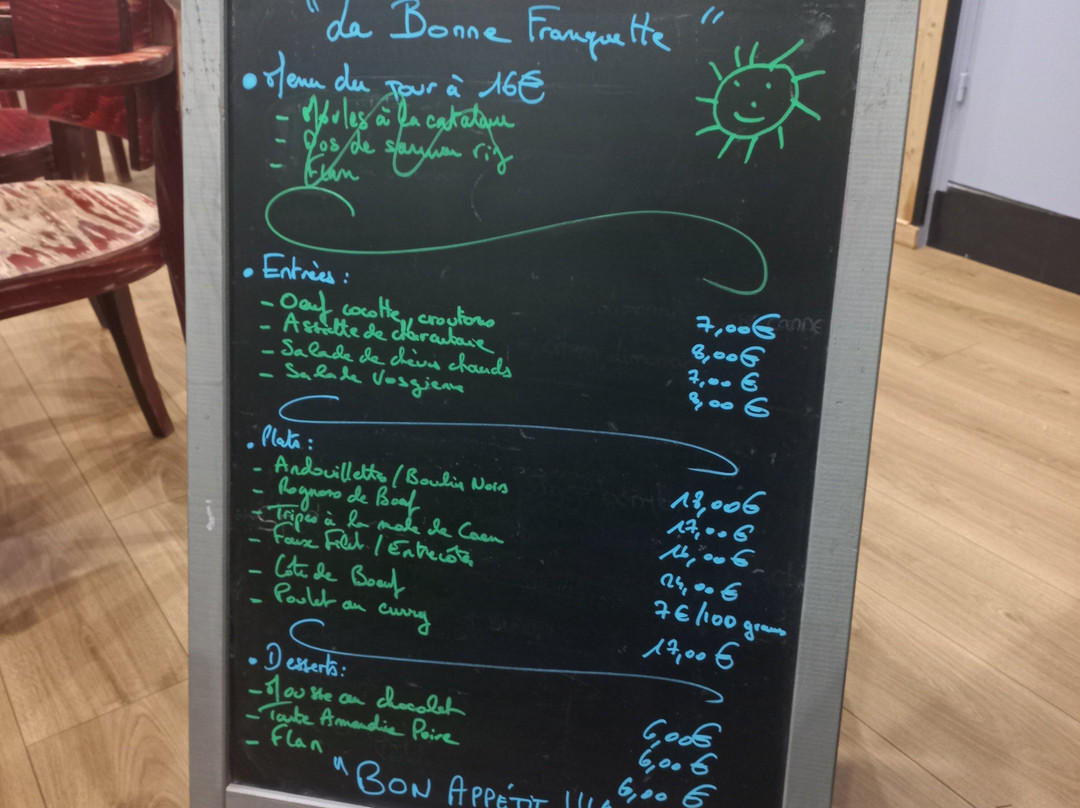 "La Bonne Franquette"
• Menu du jour à 16€
- Moules à la catalane
- Dos de saumon riz
- Flan
• Entrées :
- Oeuf cocotte, croutons 7,00€
- Assiette de charcuterie 8,00€
- Salade de chèvres chauds 7,00 €
- Salade Vosgienne 8,00 €
• Plats :
- Andouillettes / Boudin Noir 17,00€
- Rognons de Boeuf 17,00€
- Tripes à la mode de Caen
- Faux Filet / Entrecôte 24,00 €
- Côte de Boeuf 7€/100 grams
- Poulet au curry 17,00 €
• Desserts :
- Mousse au chocolat 6,00€
- Tarte Amandine Poire 6,00 €
- Flan 6,00 €
"BON APPÉTIT !!!